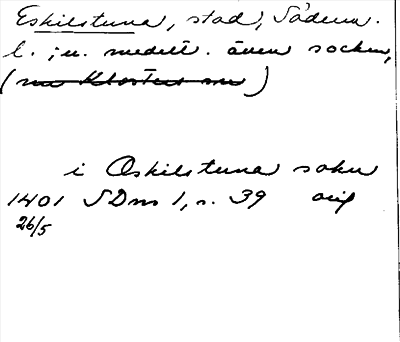 Eskilstuna, stad, Söderm.
l.; u. medelt. även socken,
(nu Klosters sn)
i Øskilstuna sokn
1401 SDns 1, s. 39 orig
26/5